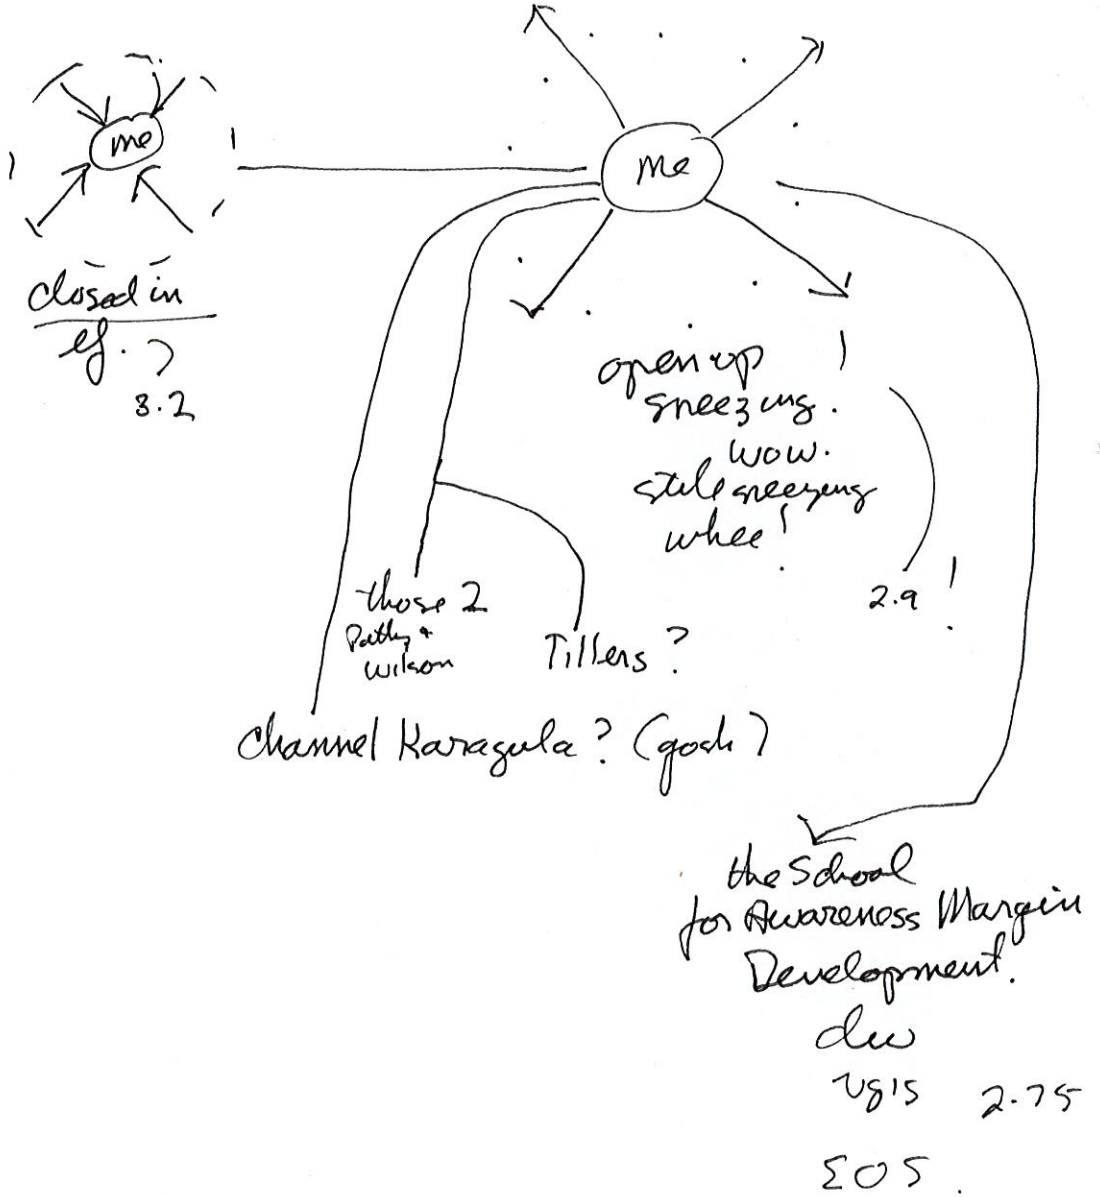 me
me
closed in
ef. ?
3.2
open up !
sneezing.
wow.
still sneezing
whee!
2.9 !
those 2
Pathy +
Wilson
Tillers ?
Channel Karagula? (gosh?)
the School
for Awareness Margin
Development.
EOS.
2.75